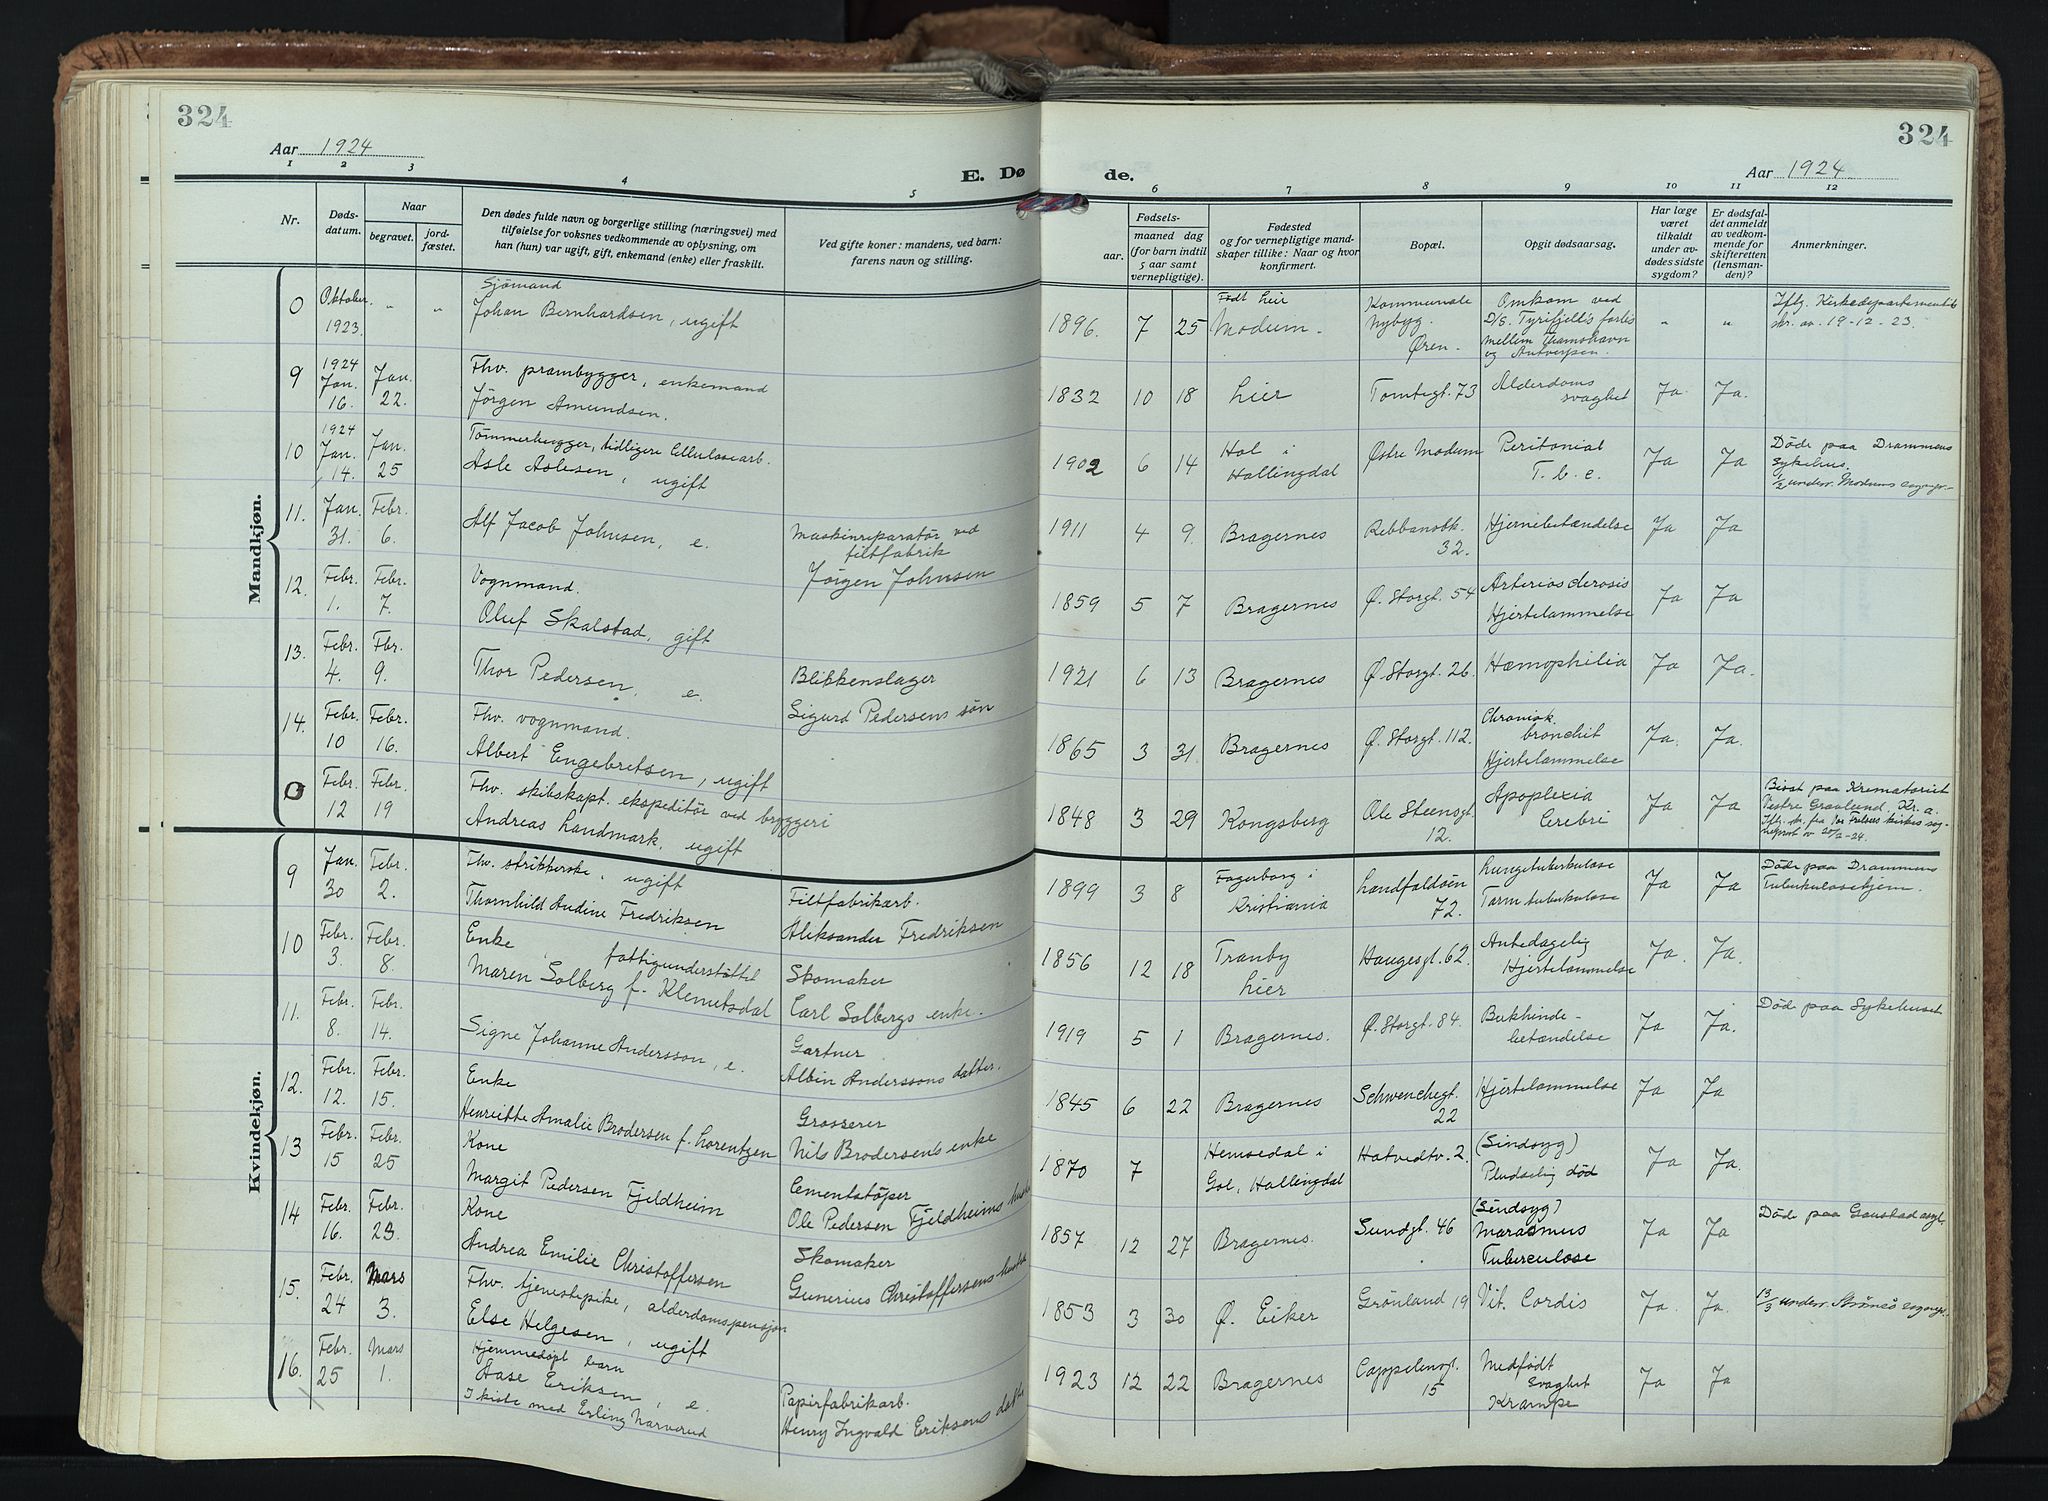 324
Aar 1924
E. Dø
1 2 3 4 5
Nr.
Døds-
datum.
Naar
begravet.
jord-
fæstet.
Den dødes fulde navn og borgerlige stilling (næringsvei) med
tilføielse for voksnes vedkommende av oplysning, om
han (hun) var ugift, gift, enkemand (enke) eller fraskilt.
Ved gifte koner: mandens, ved barn:
farens navn og stilling.
Mandkjøn.
0 Oktober 1923. " "
Sjömand
Johan Bernhardsen, ugift
9 1924 Jan. 16. Jan. 22.
Fhv. prambygger, enkemand
Jörgen Amundsen.
10 1924 Jan. 14. Jan. 25
Tömmerhugger, tidligere Cellulosearb.
Asle Aslesen, ugift
11. Jan. 31. Febr. 6.
Alf Jacob Johnsen, e.
Maskinreparatör ved
filtfabrik
Jörgen Johnsen
12. Febr. 1. Febr. 7.
Vognmand.
Oluf Skalstad, gift
13. Febr. 4. Fbr. 9.
Thor Pedersen, e.
Blikkenslager
Sigurd Pedersens sön
14. Febr. 10 Febr. 16.
Fhv. vognmand.
Albert Engebretsen, ugift
0 Febr. 12 Febr. 19
Fhv. skibskapt. ekspeditör ved bryggeri
Andreas Landmark, ugift
Kvindekjøn.
9 Jan. 30 Febr. 2.
Fhv. strikkerske, ugift
Thornhild Andine Fredriksen
Filtfabrikarb.
Aleksander Fredriksen
10 Febr. 3. Febr. 8.
Enke fattigunderstöttet
Maren Solberg f. Klemetsdal
Skomaker
Carl Solbergs enke.
11. Febr. 8. Febr. 14.
Signe Johanne Andersson, e.
Gartner
Albin Anderssons datter.
12. Febr. 12. Febr. 15.
Enke
Henriette Amalie Brodersen f. Lorentzen
Grosserer
Nils Brodersens enke
13 Febr. 15 Febr. 25
Kone
Margit Pedersen Fjeldheim
Cementstöper
Ole Pedersen Fjeldheims hustru
14 Febr. 16. Febr. 23.
Kone
Andrea Emilie Christoffersen
Skomaker
Gunerius Christoffersens hustru
15. Febr. 24 Mars 3.
Fhv. tjenestepike, alderdomspensjon
Else Helgesen, ugift
16. Febr. 25 Mars 1.
Hjemmedöpt barn
Aase Eriksen, e.
I kiste med Erling Narverud
Papirfabrikarb.
Henry Ingvald Eriksens datter
324
de.
Aar 1924
6 7 8 9 10 11 12
Fødsels-
aar.
maaned dag
(for barn indtil
5 aar samt
vernepligtige).
Fødested
og for vernepligtige mand-
skaper tillike: Naar og hvor
konfirmert.
Bopæl.
Opgit dødsaarsag.
Har læge
været
tilkaldt
under av-
dødes sidste
sygdom?
Er dødsfal-
det anmeldt
av vedkom-
mende for
skifteretten
(lensman-
den)?
Anmerkninger.
1896. 7 25 Födt Lier Modum. Kommunale Nybyg. Øren.
Omkom ved
D/S. Tyrifjell's forlis
mellem Thamshavn
og Antwerpen.
" "
Iflg. Kirkedepartementets
skr. av. 19-12-23.
1832 10 18 Lier Tomtegt. 73 Alderdoms svaghet Ja Ja.
1902 6 14 Hol i Hallingdal Østre Modum Peritonial T.b.c. Ja Ja
Döde paa Drammens
Sykehus.
1/2 underr. Modums sognepr.
1911 4 9. Bragernes Ribbansbk. 32. Hjernebetændelse Ja Ja
1859 5 7 Bragernes Ø. Storgt. 54 Arteriosclerosis Hjertelammelse Ja Ja
1921 6 13 Bragernes Ø. Storgt. 26. Hæmophilia Ja Ja.
1865 3 31 Bragernes Ø. Storgt. 112. Chronisk. bronchit Hjertelammelse Ja. Ja.
1848 3 29 Kongsberg Ole Steensgt. 12. Apoplexia Cerebri Ja Ja
Bisat paa Krematoriet
Vestre Gravlund, Kr. a.
1899 3 8 Fagerborg i Kristiania Landfaldöen 72. Lungetuberkulose Tarmtuberkulose Ja Ja
Döde paa Drammens
Tuberkulosehjem.
1856 12 18 Tranby Lier Haugesgt. 62. Anledagelig Hjertelammelse Ja. Ja.
1919 5 1 Bragernes. Ø. Storgt. 84. Bukhinde- betændelse Ja Ja.
Döde paa Sykehuset
1845 6 22 Bragernes Schwenckegt. 22 Hjertelammelse Ja Ja
1870 7 Hemsedal i Gol, Hallingdal Hatvedtv. 2. (Sindsyg) Pludselig död Ja Ja.
1857 12 27 Bragernes. Sundgt. 46 (Sindsyg) Marasmus Tuberculose Ja Ja
Döde paa Gaustad asyl.
1853 3 30 Ø. Eiker Grönland 19 Vit. Cordis Ja. Ja.
13/3 underr. Strömsö sognepr.
1923 12 22 Bragernes Cappelensgt. 15 Medfödt Svaghet Krampe Ja Ja